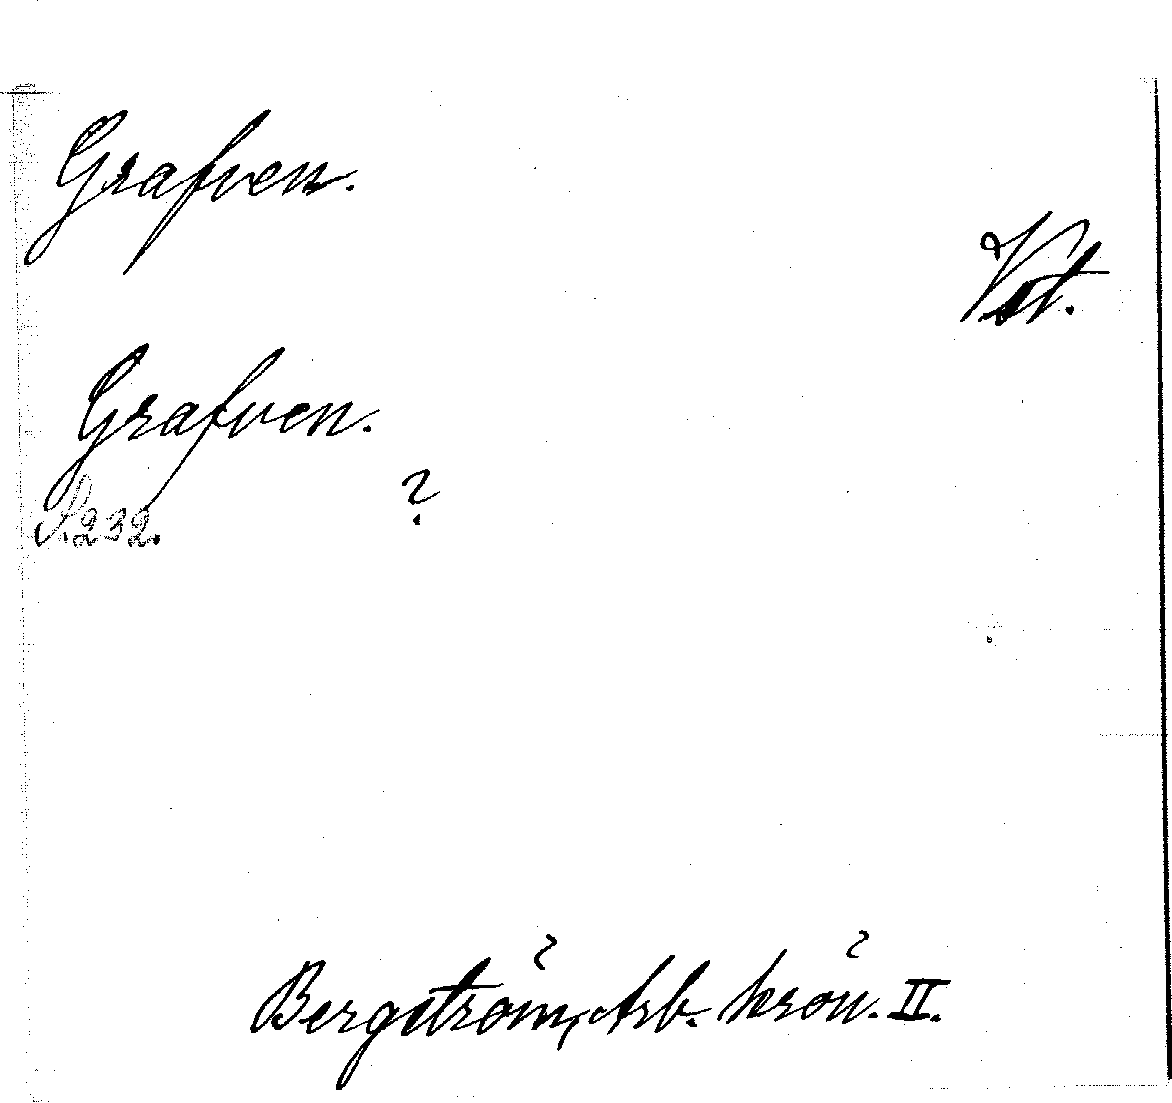 Grafven.
Vst.
Grafven.
S. 232.
?
Bergström, Arb. krön. II.